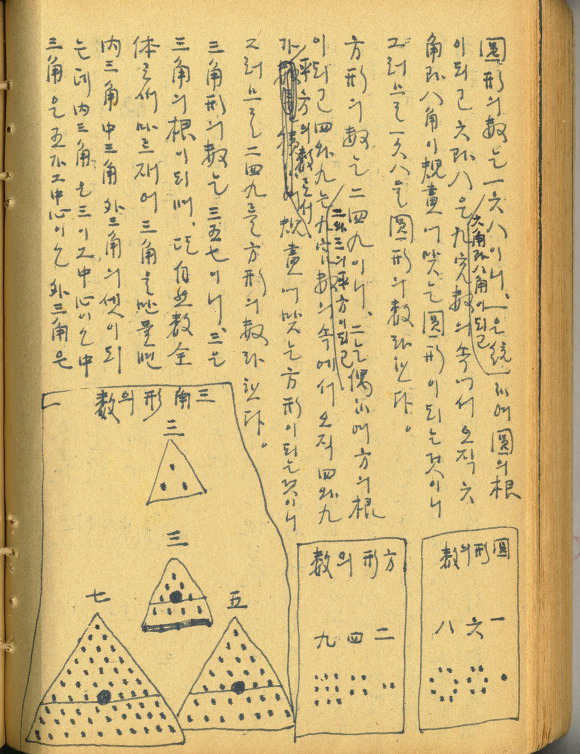 圓形의 数는 一六八이니, 一은 統一이며 圓의 根
이되고 六과八은 九完数의 속에서 오직 六
六角과 八角이되고
角과 八角이 規畫에 맞는 圓形이 되는것이니
그러므로 一六八은 圓形의 数라 한다。
方形의 数는 二四九이니, 二는 偶이며 方의 根
이되고 四와九는 九完数의 속에서 오직 四와九
二와三의 平方이되고
가 規畫에 맞는 方形이 되는것이니
平方의 数로서
그러므로 二四九를 方形의 数라 한다。
三角形의 数는 三五七이니, 三은
三角의 根이되며, 自然数全
体로서 바르재어 三角을 만들면
内三角 中三角 外三角의 셋이 되
는데 内三角은 三이고 中心이 中
三角은 五가고 中心이 外三角은
三角形의 数
三
三
五
七
方形의 数
二 四 九
圓形의 数
一 六 八